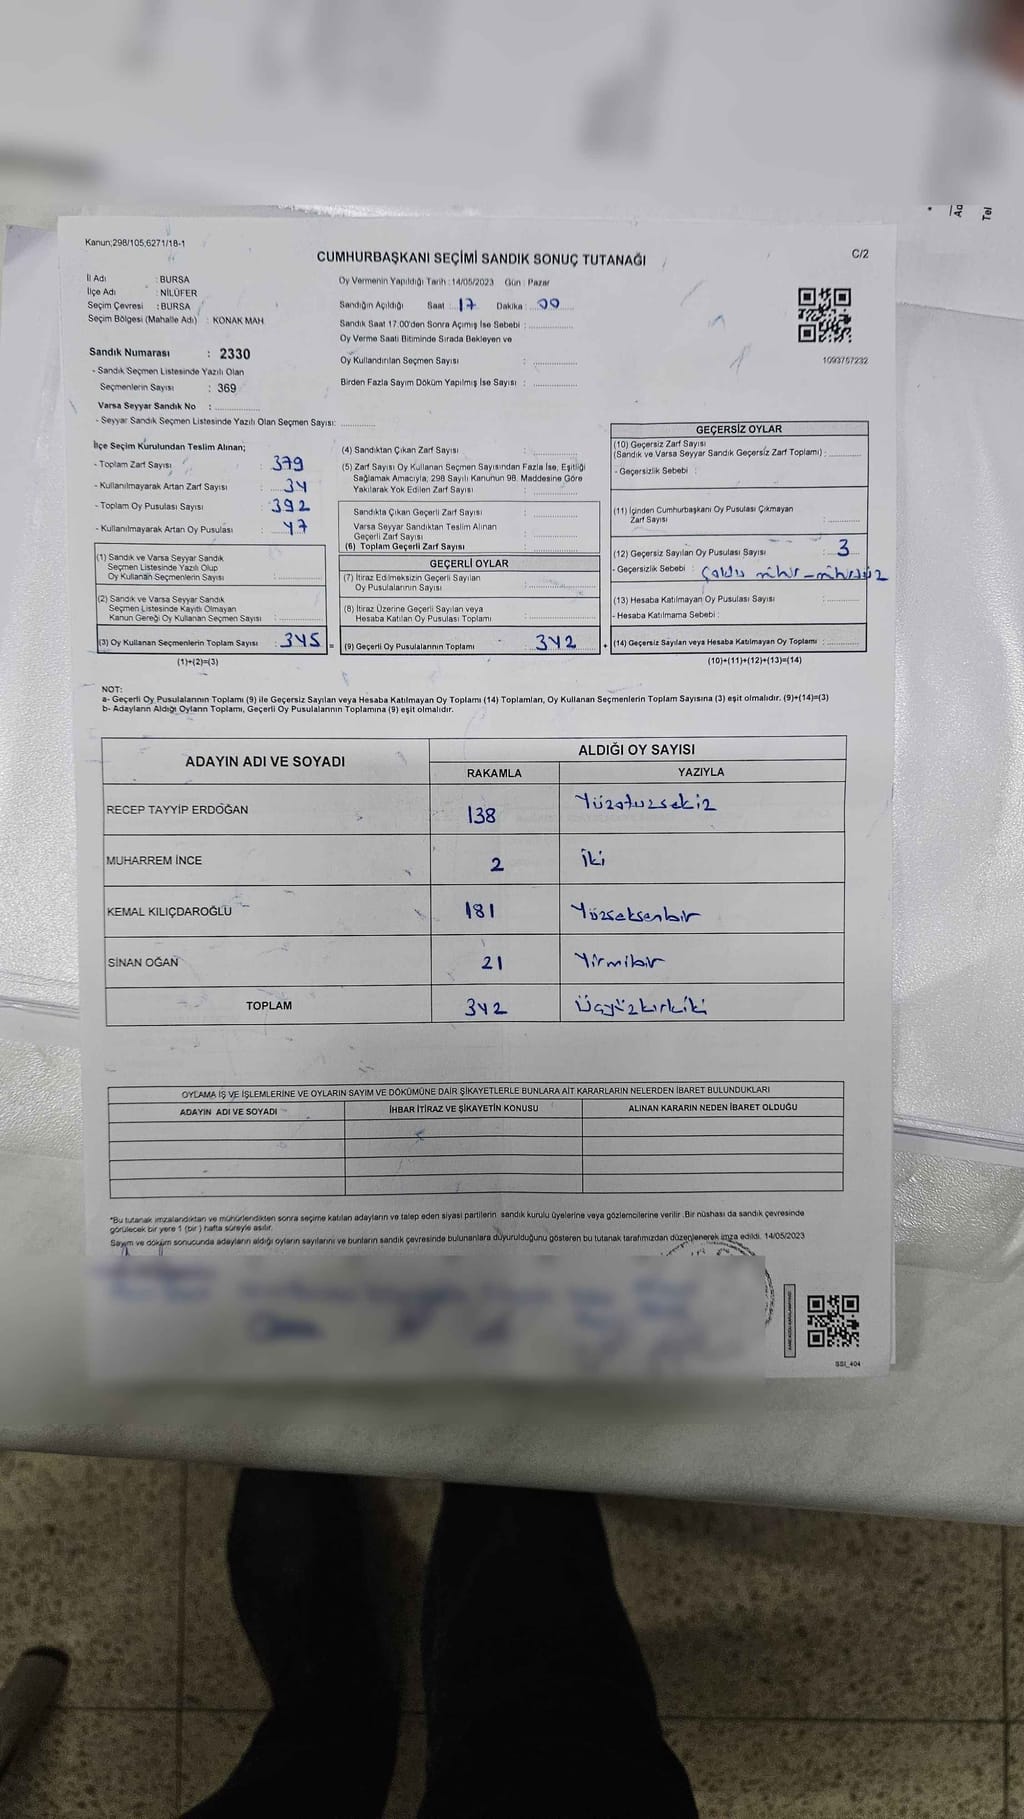 Ad
Tel
Kanun;298/105,6271/18-1
CUMHURBAŞKANI SEÇİMİ SANDIK SONUÇ TUTANAĞI
C/2
İl Adı : BURSA
İlçe Adı : NİLÜFER
Seçim Çevresi : BURSA
Seçim Bölgesi (Mahalle Adı) : KONAK MAH
Oy Vermenin Yapıldığı Tarih : 14/05/2023 Gün : Pazar
Sandığın Açıldığı Saat : 17 Dakika : 00
Sandık Saat 17.00'den Sonra Açımış İse Sebebi :
Oy Verme Saati Bitiminde Sırada Bekleyen ve
Oy Kullandırılan Seçmen Sayısı :
Birden Fazla Sayım Döküm Yapılmış İse Sayısı :
1093757232
Sandık Numarası : 2330
- Sandık Seçmen Listesinde Yazılı Olan
Seçmenlerin Sayısı : 369
Varsa Seyyar Sandık No :
- Seyyar Sandık Seçmen Listesinde Yazılı Olan Seçmen Sayısı:
İlçe Seçim Kurulundan Teslim Alınan;
- Toplam Zarf Sayısı : 379
- Kullanılmayarak Artan Zarf Sayısı : 34
- Toplam Oy Pusulası Sayısı : 392
- Kullanılmayarak Artan Oy Pusulası : 47
(1) Sandık ve Varsa Seyyar Sandık
Seçmen Listesinde Yazılı Olup
Oy Kullanan Seçmenlerin Sayısı :
(2) Sandık ve Varsa Seyyar Sandık
Seçmen Listesinde Kayıtlı Olmayan
Kanun Gereği Oy Kullanan Seçmen Sayısı :
(3) Oy Kullanan Seçmenlerin Toplam Sayısı : 345 =
(1)+(2)=(3)
(4) Sandıktan Çıkan Zarf Sayısı :
(5) Zarf Sayısı Oy Kullanan Seçmen Sayısından Fazla İse, Eşitliği
Sağlamak Amacıyla; 298 Sayılı Kanunun 98. Maddesine Göre
Yakılarak Yok Edilen Zarf Sayısı :
Sandıkta Çıkan Geçerli Zarf Sayısı :
Varsa Seyyar Sandıktan Teslim Alınan
Geçerli Zarf Sayısı :
(6) Toplam Geçerli Zarf Sayısı :
GEÇERLİ OYLAR
(7) İtiraz Edilmeksizin Geçerli Sayılan
Oy Pusulalarının Sayısı :
(8) İtiraz Üzerine Geçerli Sayılan veya
Hesaba Katılan Oy Pusulası Toplamı :
(9) Geçerli Oy Pusulalarının Toplamı : 342 +
GEÇERSİZ OYLAR
(10) Geçersiz Zarf Sayısı
(Sandık ve Varsa Seyyar Sandık Geçersiz Zarf Toplamı) :
- Geçersizlik Sebebi :
(11) İçinden Cumhurbaşkanı Oy Pusulası Çıkmayan
Zarf Sayısı :
(12) Geçersiz Sayılan Oy Pusulası Sayısı : 3
- Geçersizlik Sebebi :
(13) Hesaba Katılmayan Oy Pusulası Sayısı :
- Hesaba Katılmama Sebebi :
(14) Geçersiz Sayılan veya Hesaba Katılmayan Oy Toplamı :
(10)+(11)+(12)+(13)=(14)
NOT:
a- Geçerli Oy Pusulalarının Toplamı (9) ile Geçersiz Sayılan veya Hesaba Katılmayan Oy Toplamı (14) Toplamları, Oy Kullanan Seçmenlerin Toplam Sayısına (3) eşit olmalıdır. (9)+(14)=(3)
b- Adayların Aldığı Oyların Toplamı, Geçerli Oy Pusulalarının Toplamına (9) eşit olmalıdır.
ADAYIN ADI VE SOYADI
ALDIĞI OY SAYISI
RAKAMLA YAZIYLA
RECEP TAYYİP ERDOĞAN 138 Yüzotuzsekiz
MUHARREM İNCE 2 İki
KEMAL KILIÇDAROĞLU 181 Yüzseksenbir
SİNAN OĞAN 21 Yirmibir
TOPLAM 342 Üçyüzkırkiki
OYLAMA İŞ VE İŞLEMLERİNE VE OYLARIN SAYIM VE DÖKÜMÜNE DAİR ŞİKAYETLERLE BUNLARA AİT KARARLARIN NELERDEN İBARET BULUNDUKLARI
ADAYIN ADI VE SOYADI İHBAR İTİRAZ VE ŞİKAYETİN KONUSU ALINAN KARARIN NEDEN İBARET OLDUĞU
*Bu tutanak imzalandıktan ve mühürlendikten sonra seçime katılan adayların ve talep eden siyasi partilerin sandık kurulu üyelerine veya gözlemcilerine verilir. Bir nüshası da sandık çevresinde
görülecek bir yere 1 (bir) hafta süreyle asılır.
Sayım ve döküm sonucunda adayların aldığı oyların sayılarını ve bunların sandık çevresinde bulunanlara duyurulduğunu gösteren bu tutanak tarafımızdan düzenlenerek imza edildi. 14/05/2023
SSI_404